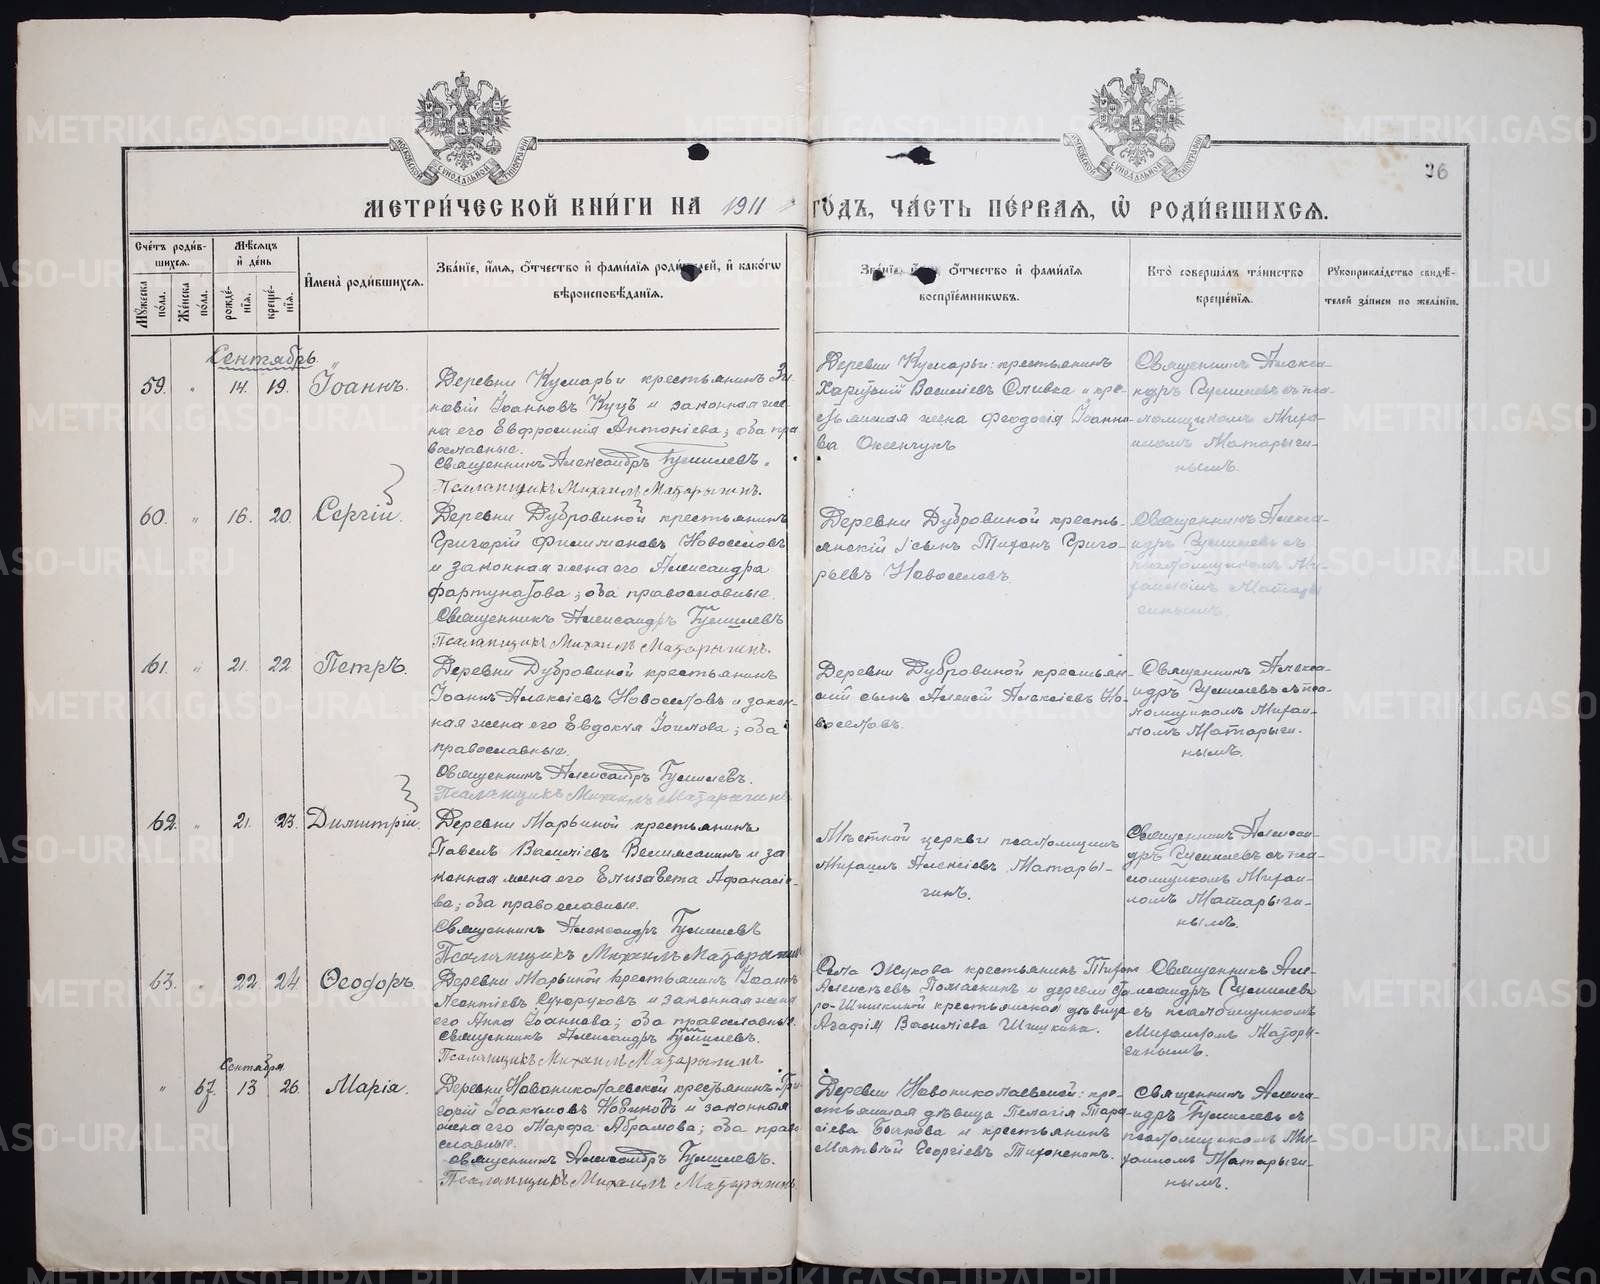 26
МЕТРИ́ЧЕСКОЙ КНИ́ГИ НА 1911 ГО́ДЪ, ЧА́СТЬ ПЕ́РВАЯ, Ѿ РОДИ́ВШИХСЯ.
Сче́тъ роди́вшихся.
Му́жеска по́ла.
Же́нска по́ла.
Мѣ́сяцъ и де́нь
рожде́нїя.
креще́нїя.
И҆мена̀ роди́вшихся.
Зва́нїе, и҆́мя, о҆́тчество и҆ фами́лїя роди́телей, и҆ како́гѡ
вѣроисповѣ́данїя.
Зва́нїе, и҆́мя, о҆́тчество и҆ фами́лїя
воспрїе́мниковъ.
Кто̀ соверша́лъ та́инство
креще́нїя.
Рꙋкоприкла́дство свидѣ́-
телей за́писи по жела́нїю.
Сентябрь
59. " 14. 19. Іоаннъ.
Деревни Кумарьи крестьянинъ Зи-
новій Іоанновъ Куцъ и законная же-
на его Евфросинія Антоніева; оба пра
вославные.
Священникъ Александръ Гумилевъ.
Псаломщикъ Михаилъ Матарыгинъ.
Деревни Кумарьи: крестьянинъ
Харитоній Василіевъ Сливка и кре-
стьянская жена Феодосія Іоанно-
ва Оксенчукъ
Священникъ Алекса-
ндръ Гумилевъ съ пса-
ломщикомъ Миха-
иломъ Матарыги-
нымъ.
60. " 16. 20. Сергій.
Деревни Дубровиной крестьянинъ
Григорій Филимоновъ Новоселовъ
и законная жена его Александра
Фартунатова; оба православные.
Священникъ Александръ Гумилевъ
Псаломщикъ Михаилъ Матарыгинъ.
Деревни Дубровиной кресть-
янскій сынъ Тихонъ Григо-
рьевъ Новоселовъ.
Священникъ Алекса-
ндръ Гумилевъ съ
псаломщикомъ Ми-
хаиломъ Матары
гинымъ.
61. " 21. 22. Петръ.
Деревни Дубровиной крестьянинъ
Іоаннъ Алексіевъ Новоселовъ и закон-
ная жена его Евдокія Іоимова; оба
православные.
Священникъ Александръ Гумилевъ.
Псаломщикъ Михаилъ Матарыгинъ
Деревни Дубровиной крестьян-
скій сынъ Алексій Алексіевъ Но-
воселовъ.
Священникъ Алекса-
ндръ Гумилевъ съ пса-
ломщикомъ Михаи-
ломъ Матарыги-
нымъ.
62. " 21. 23. Димитрій.
Деревни Марьиной крестьянинъ
Павелъ Василіевъ и за
конная жена его Елизавета Афанасіе-
ва; оба православные.
Священникъ Александръ Гумилевъ
Псаломщикъ Михаилъ Матарыгинъ
Мѣстной церкви псаломщикъ
Михаилъ Алексіевъ Матары-
гинъ.
Священникъ Алексан-
дръ Гумилевъ съ пса-
ломщикомъ Михаи-
ломъ Матарыги-
нымъ.
63. " 22. 24. Ѳеодоръ.
Деревни Марьиной крестьянинъ Іоаннъ
Леонтіевъ Сухоруковъ и законная жена
его Анна Іоаннова; оба православные.
Священникъ Александръ Гумилевъ.
Псаломщикъ Михаилъ Матарыгинъ
Села Жукова крестьянинъ Тихонъ
Алексѣевъ и деревни
крестьянская дѣвица
Агафія Василіева Шишкина.
Священникъ Але-
ксандръ Гумилевъ
съ псаломщикомъ
Михаиломъ Матары-
гинымъ.
Сентября
" 67. 13 26 Марія.
Деревни Новониколаевской крестьянинъ Гри-
горій Іоакимовъ Новиковъ и законная
жена его Марфа Абрамова; оба право-
славные.
Священникъ Александръ Гумилевъ.
Псаломщикъ Михаилъ Матарыгинъ
Деревни Новониколаевской: кре-
стьянская дѣвица Пелагія Тара-
сіева Бычкова и крестьянинъ
Матвѣй Георгіевъ Тихоненокъ.
Священникъ Алекса-
ндръ Гумилевъ съ
псаломщикомъ Ми-
хаиломъ Матарыги-
нымъ.
METRIKI.GASO-URAL.RU